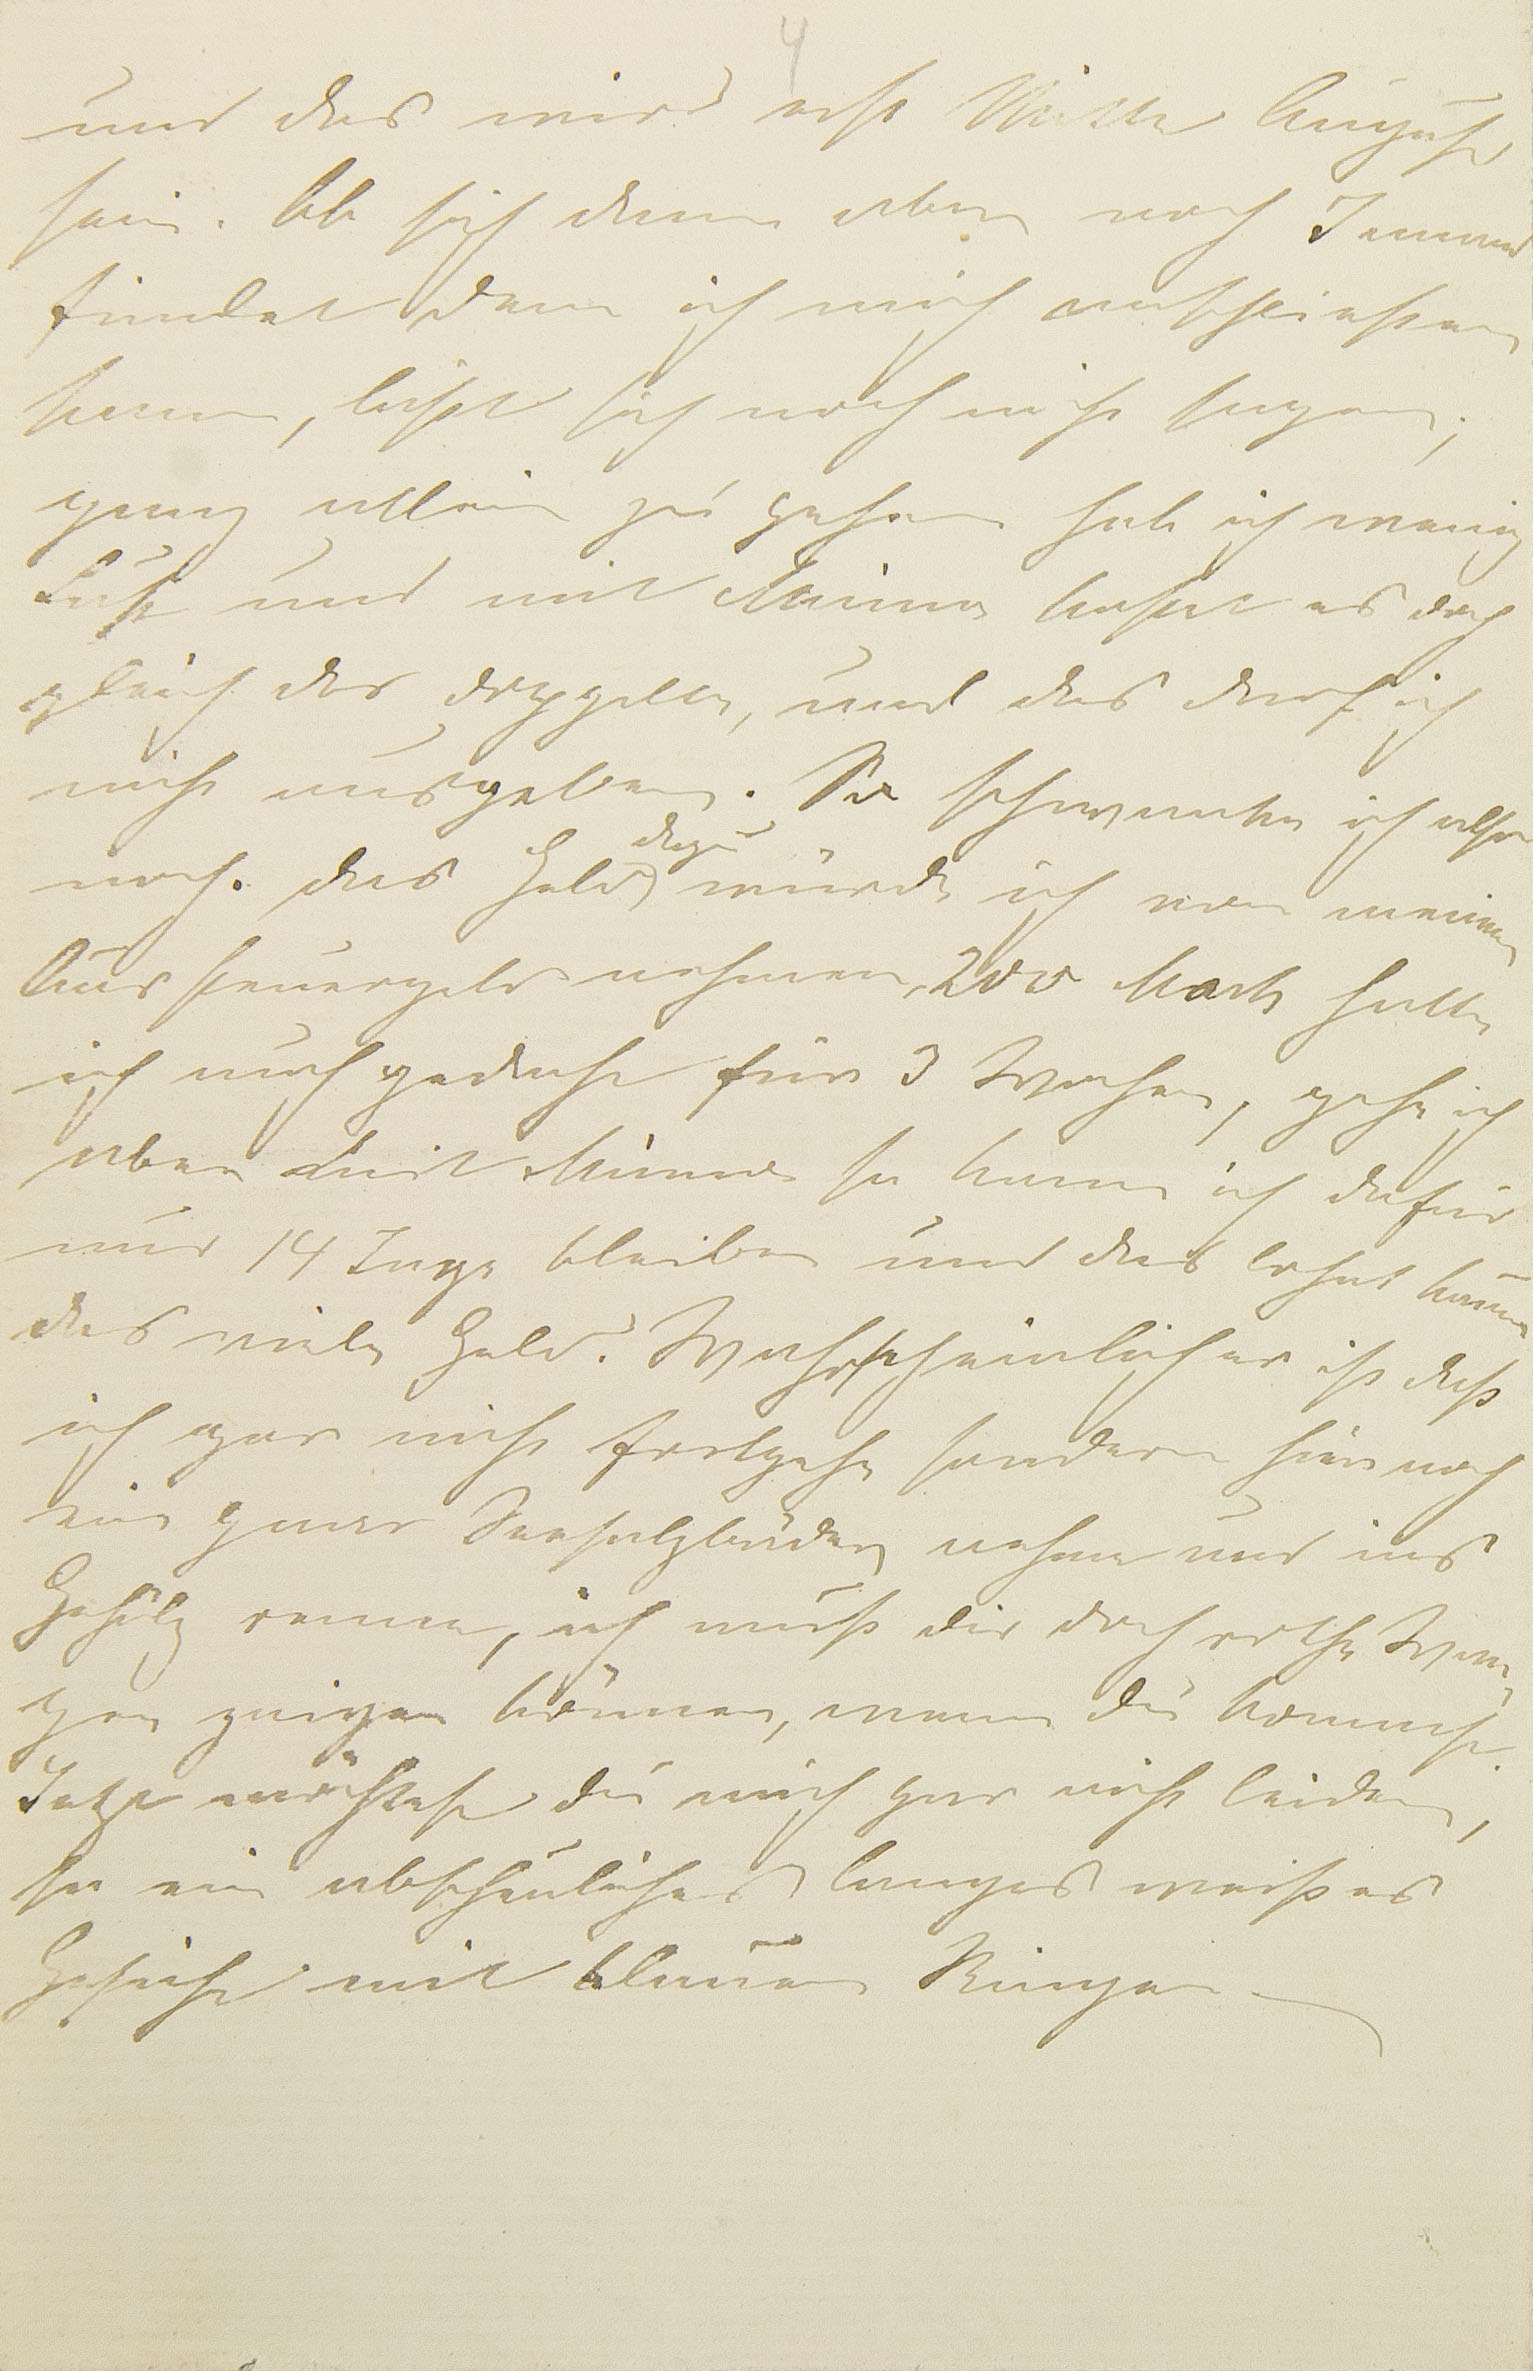 4
und das wird erst Mitte August
sein. Ob sich dann aber noch Jemand
findet dem ich mich anschließen
kann, läßt sich noch nicht sagen,
ganz allein zu gehen hab ich wenig
Lust und mit Minna kostet es doch
gleich das doppelte, und das darf ich
nicht ausgeben. So schwanke ich also
dazu
noch. Das Geld würde ich von meinem
Aussteuergeld nehmen, 200 Mark hatte
ich mich gedacht für 3 Wochen, gehe ich
aber mit Minna so kann ich dafür
nur 14 Tage bleiben und das lohnt kaum
das viele Geld. Wahrscheinlicher ist daß
ich gar nicht fortgehe sondern hier noch
ein paar Seesalzbäder nehme und ins
Gehölz renne, ich muß dir doch rothe Wan
gen zeigen können, wenn du kommst.
Jetzt möchtest du mich gar nicht leiden,
so ein abscheuliches langes weißes
Gesicht mit blauen Ringen